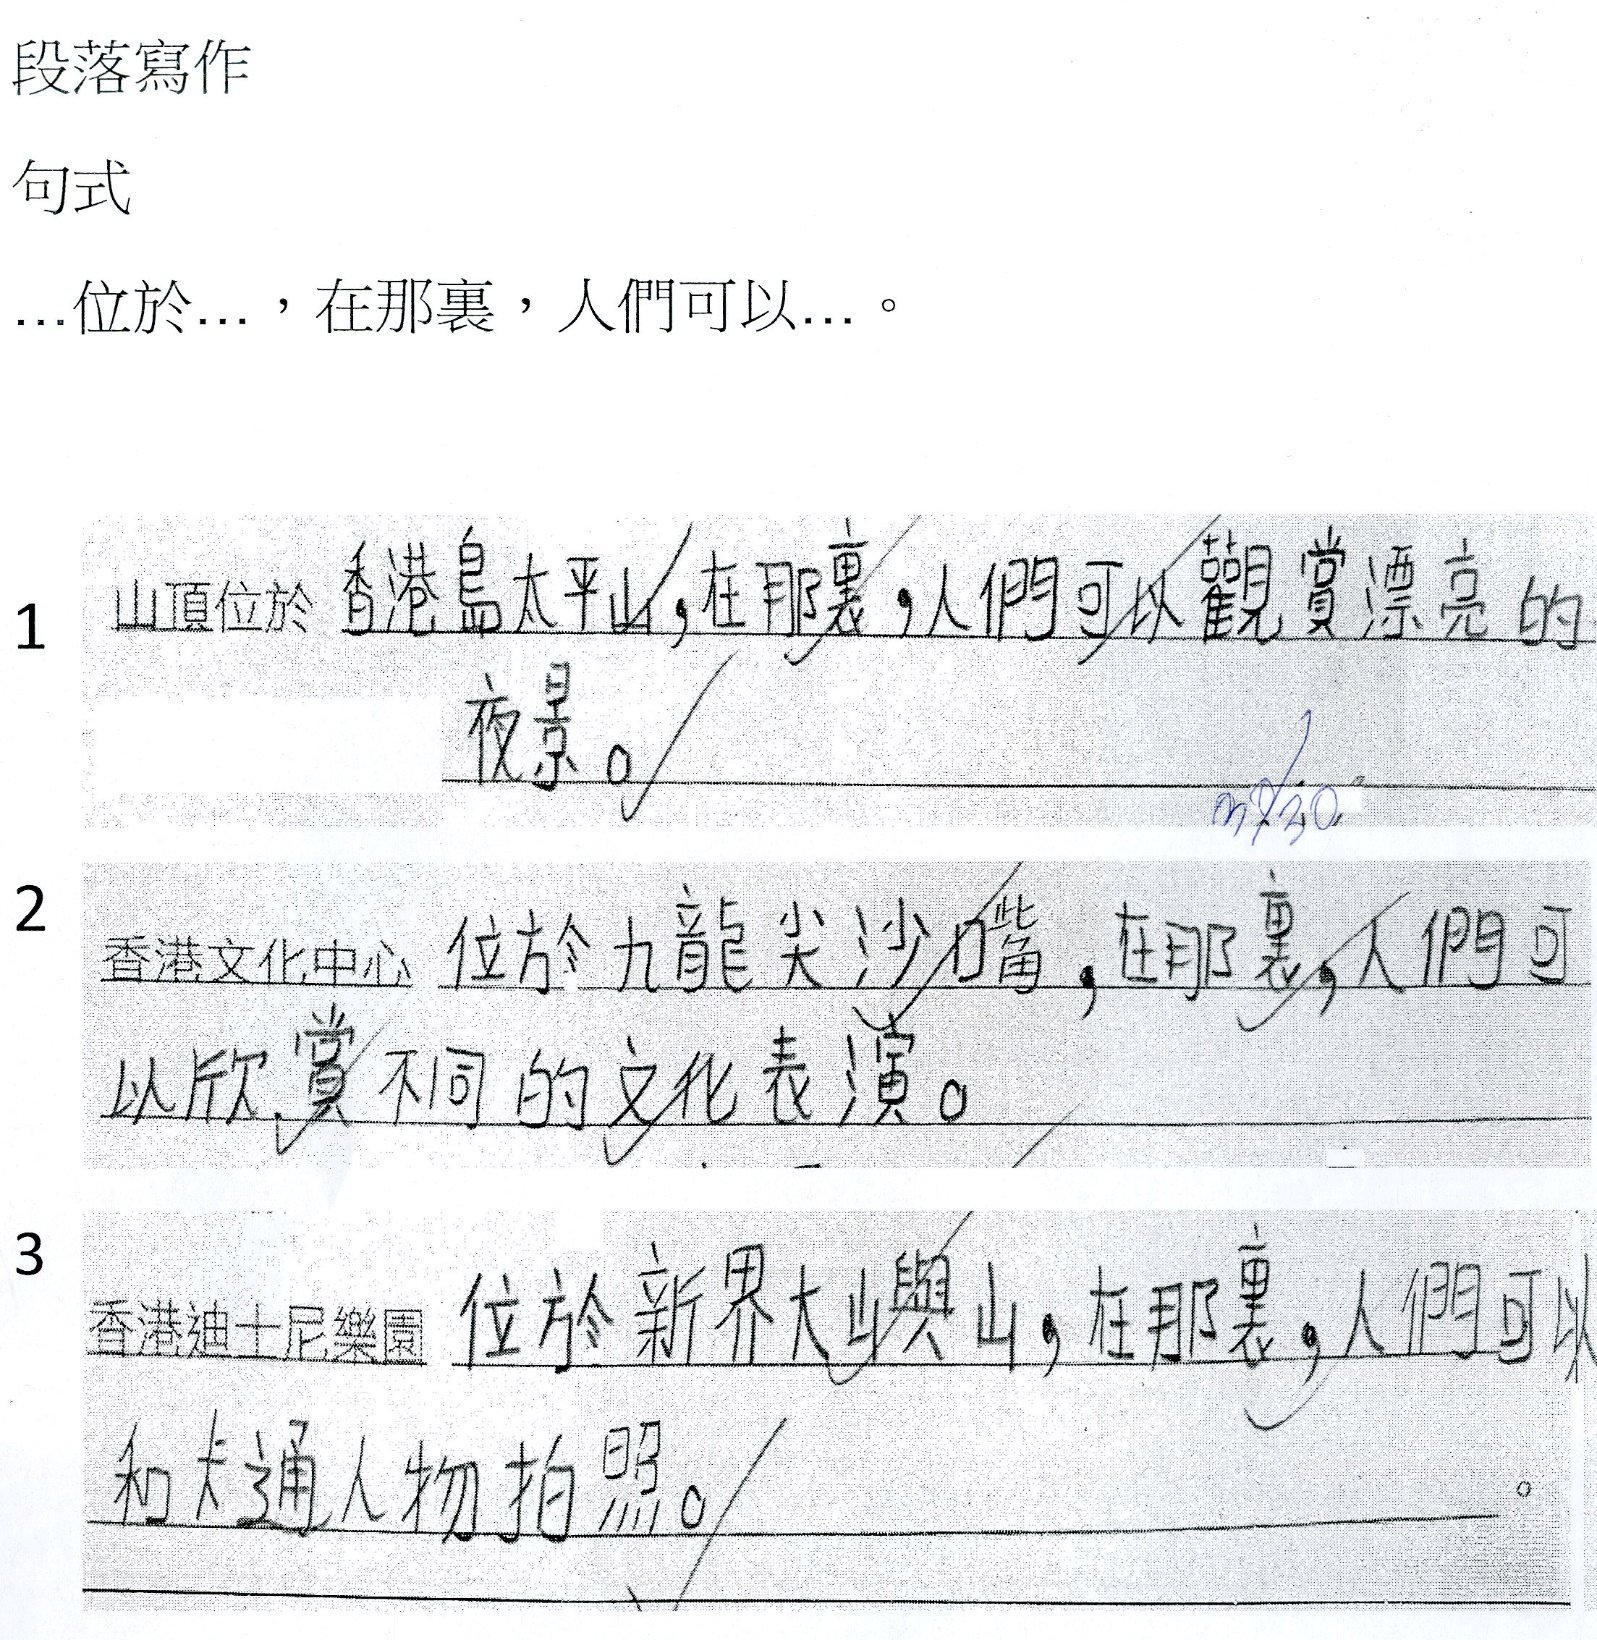 段落寫作
句式
…位於…，在那裏，人們可以…。
1 山頂位於 香港島太平山，在那裏，人們可以觀賞漂亮的
夜景。
2 香港文化中心 位於九龍尖沙嘴，在那裏，人們可
以欣賞不同的文化表演。
3 香港迪士尼樂園 位於新界大嶼山，在那裏，人們可以
和卡通人物拍照。 。